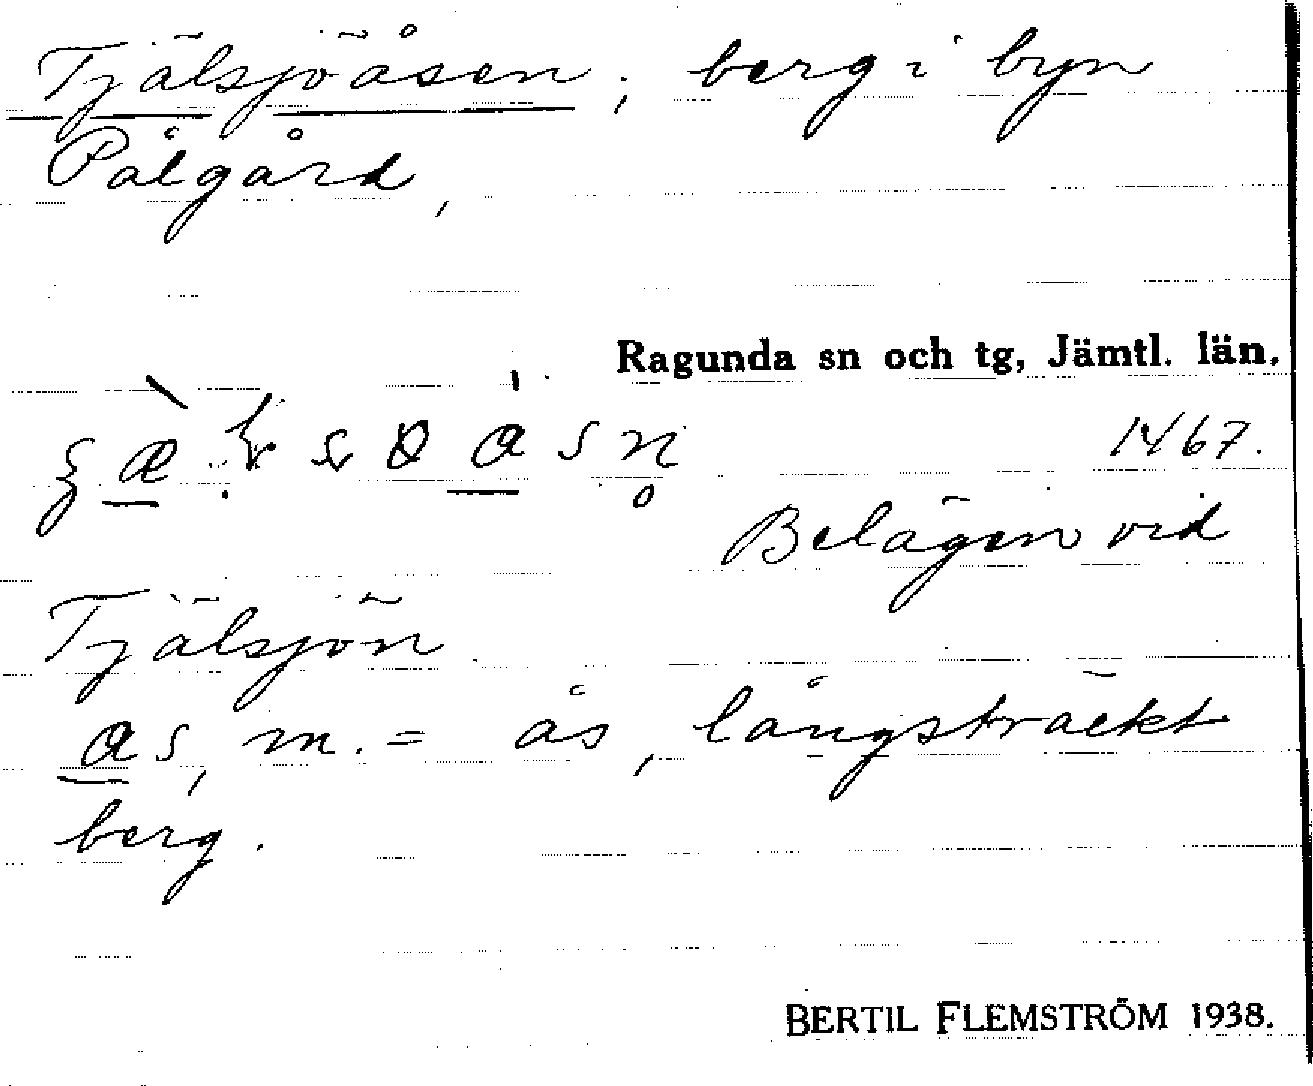 Tjälsjöåsen, berg i byn
Pålgård,
Ragunda sn och tg, Jämtl. län.
1467.
Belägen vid
Tjälsjön
as, m. = ås, långsträckt
berg.
BERTIL FLEMSTRÖM 1938.